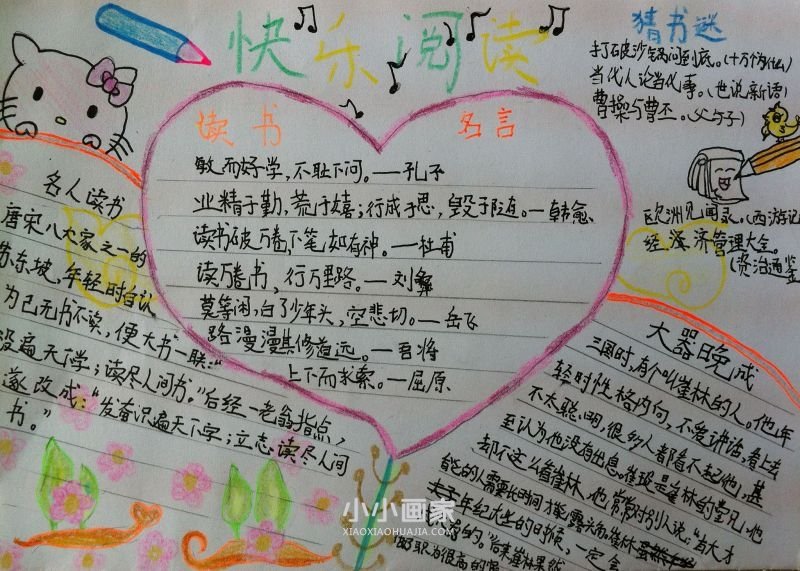 快乐阅读
读书名言
敏而好学，不耻下问。——孔子
业精于勤，荒于嬉；行成于思，毁于随。—韩愈
读书破万卷，下笔如有神。——杜甫
读万卷书，行万里路。——刘彝
莫等闲，白了少年头，空悲切。——岳飞
路漫漫其修道远。——吾将
上下而求索。——屈原
猜书谜
打破沙锅问到底。（十万个为什么）
当代人论当代事。（世说新语）
曹操与曹丕。（父与子）
欧洲见闻录。（西游记）
经济管理大全。
（资治通鉴
名人读书
唐宋八大家之一的
苏东坡，年轻时自认
为已无书不读，便大书一联：“
识遍天下字；读尽人间书。”后经一老翁指点，
遂改成：“发奋识遍天下字；立志读尽人间
书。”
大器晚成
三国时，有个叫崔林的人。他年
轻时性格内向，不爱讲话，看上去
不太聪明，很多人都看不起他，甚
至认为他没有出息。崔琰是崔林的堂兄，他
却不这么看崔林，他常常对别人说。“有大才
能的人需要长时间才能显露
年纪大些的日候，一定会
的。”后来崔林果然
很高的官
小小画家
XIAOXIAOHUAJIA.COM